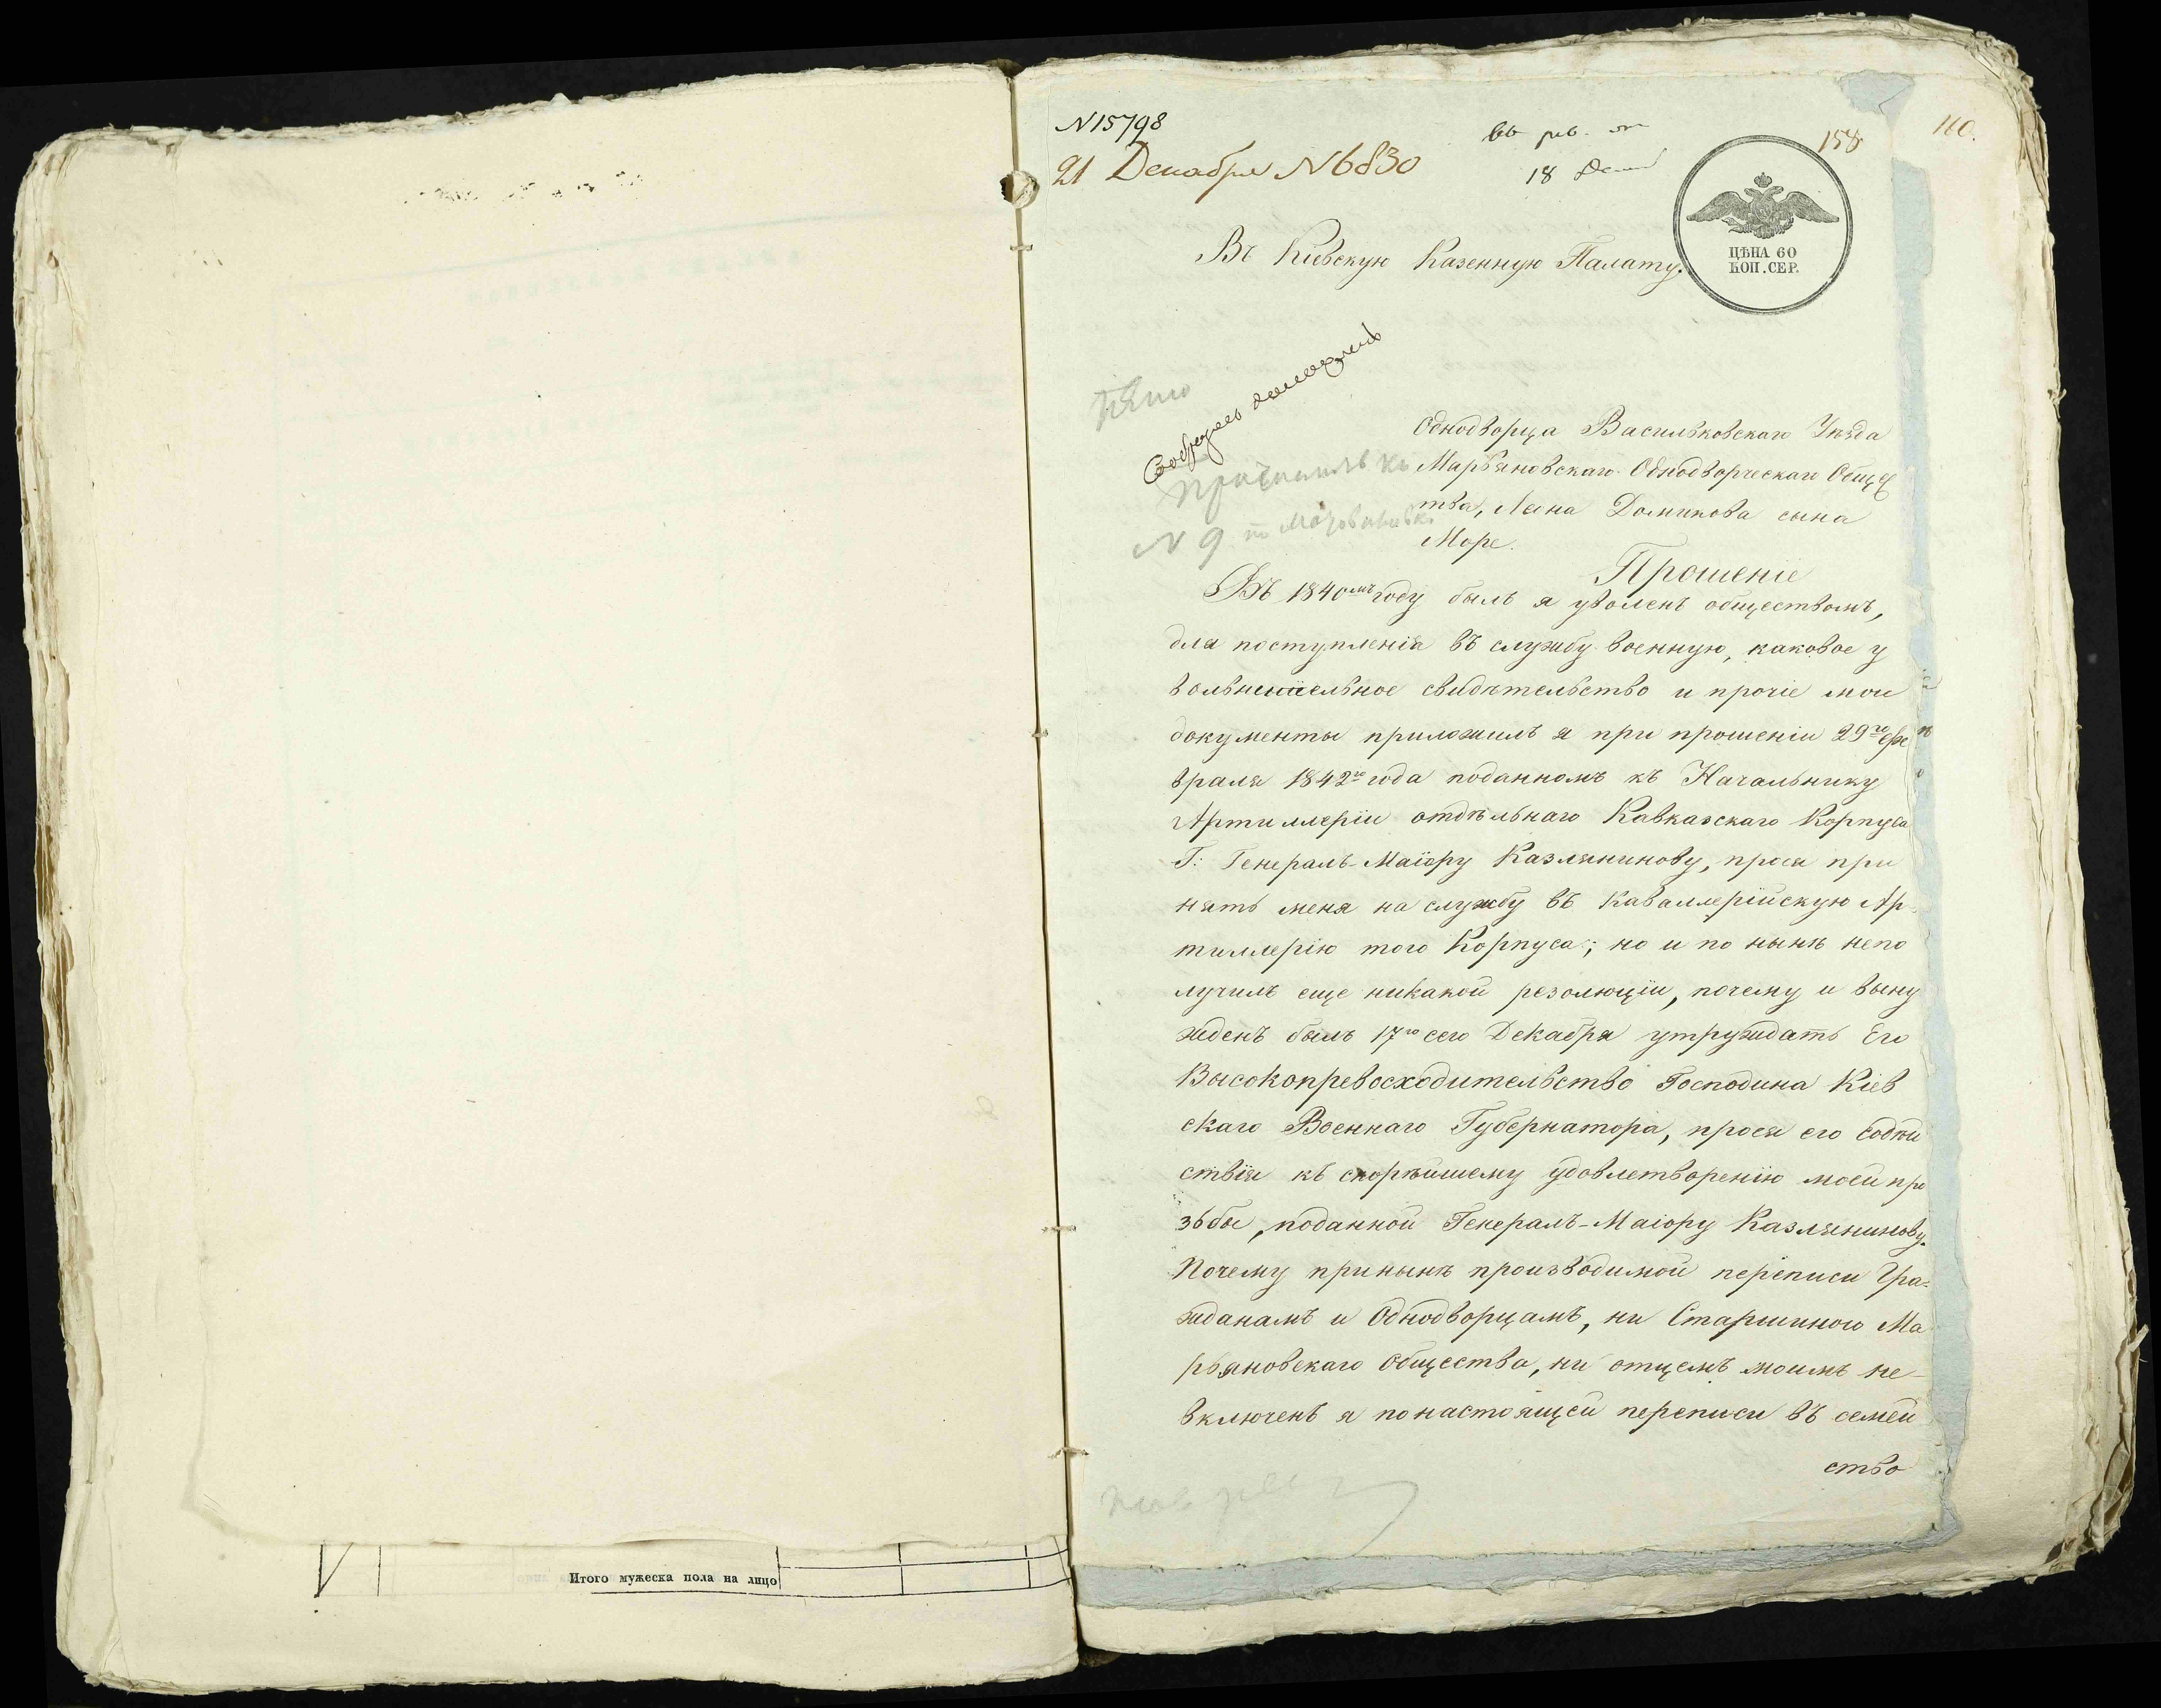 N 15798
21 Декабря N 6830
18 Дек
158
160.
ЦѢНА 60
КОП. СЕР.
Въ Кіевскую Казенную Палату.
Однодворца Васильковскаго Уѣзда
Марьяновскаго Однодворческаго Общес
тва, Леона Доминикова сына
N 9
Море.
Прошеніе
Въ 1840мъ году былъ я уволенъ обществомъ,
для поступленія въ службу военную, каковое у
вольнительное свидѣтельство и прочіе мои
документы приложилъ я при прошеніи 29го Фе
враля 1842го года поданномъ къ Начальнику
Артиллеріи отдѣльнаго Кавказскаго Корпуса
Г: Генералъ-Маіору Казлянинову, прося при
нять меня на службу въ Каваллерійскую Ар-
тиллерію того Корпуса; но и по нынѣ непо
лучилъ еще никакой резолюціи, почему и выну
жденъ былъ 17го сего Декабря утруждать Его
Высокопревосходительство Господина Кіев
скаго Военнаго Губернатора, прося его содѣй
ствія къ скорѣйшему удовлетворенію моей про
зьбы, поданной Генералъ-Маіору Казлянинову.
Почему принынѣ производимой переписи Гра-
жданамъ и Однодворцамъ, ни Старшиною Ма
рьяновскаго Общества, ни отцемъ моимъ не-
включенъ я понастоящей переписи въ семей
ство
Итого мужеска пола на лицо